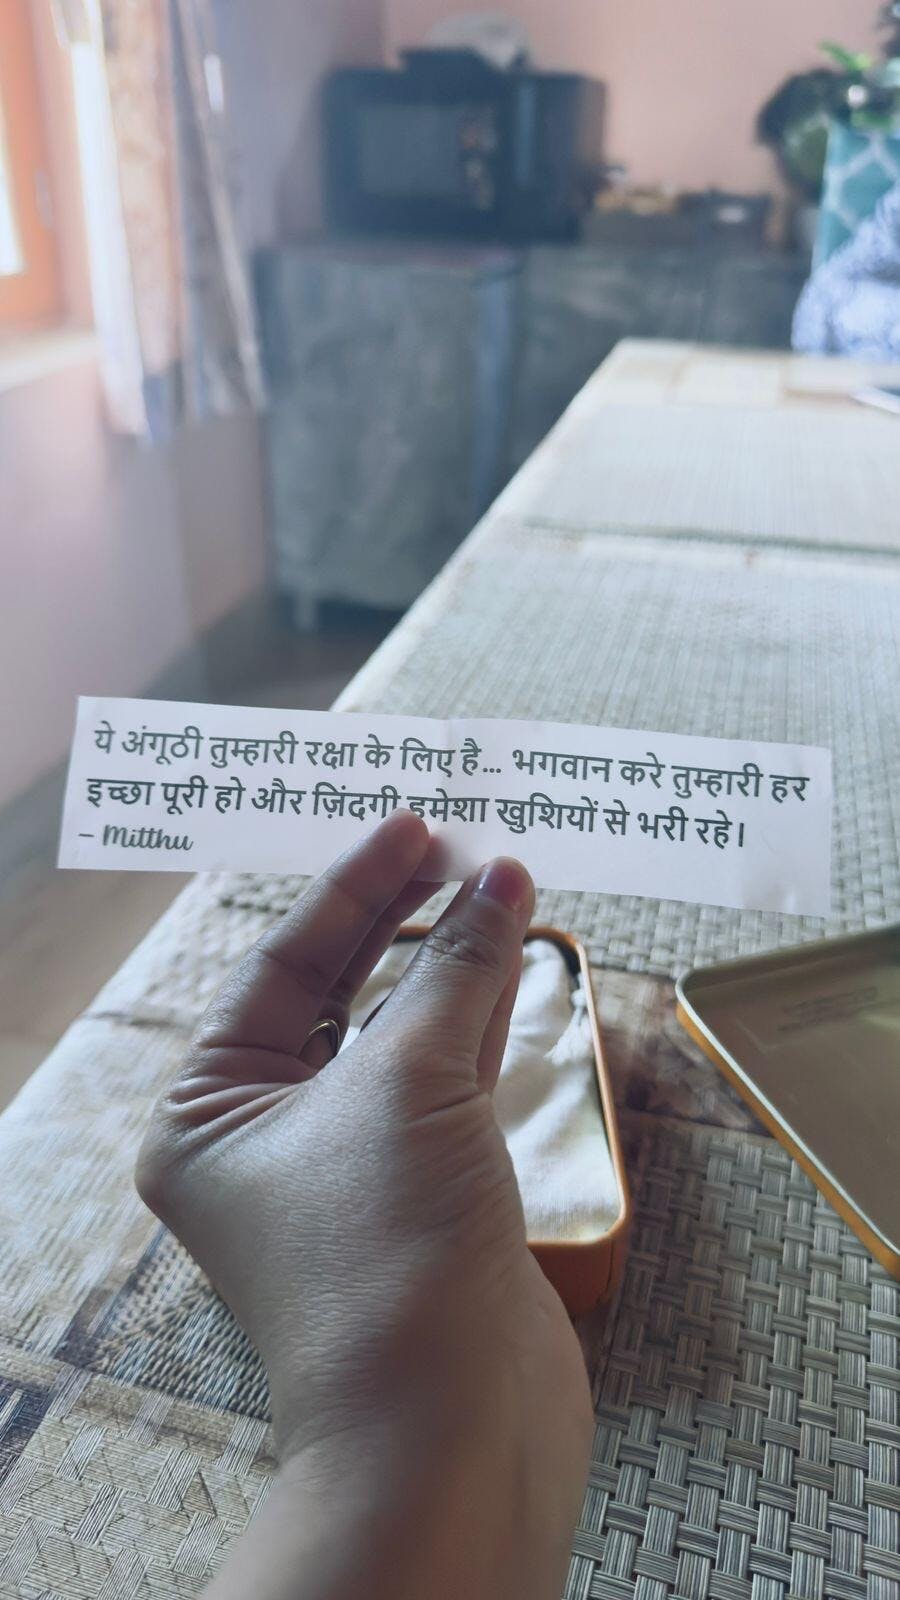 ये अंगूठी तुम्हारी रक्षा के लिए है... भगवान करे तुम्हारी हर
इच्छा पूरी हो और ज़िंदगी हमेशा खुशियों से भरी रहे।
– Mitthu